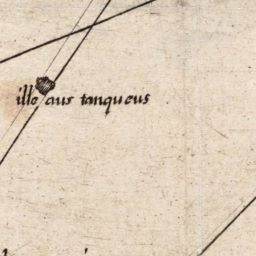 ille aus tanqueus